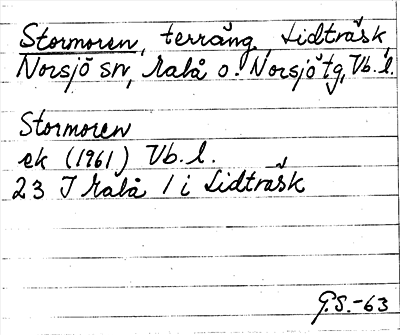 Stormoren, terräng, Lidträsk,
Norsjö sn, Malå o. Norsjö tg, Vb. l.
Stormoren
ek (1961) Vb. l.
23 I Malå 1 i Lidträsk
G.S.-63